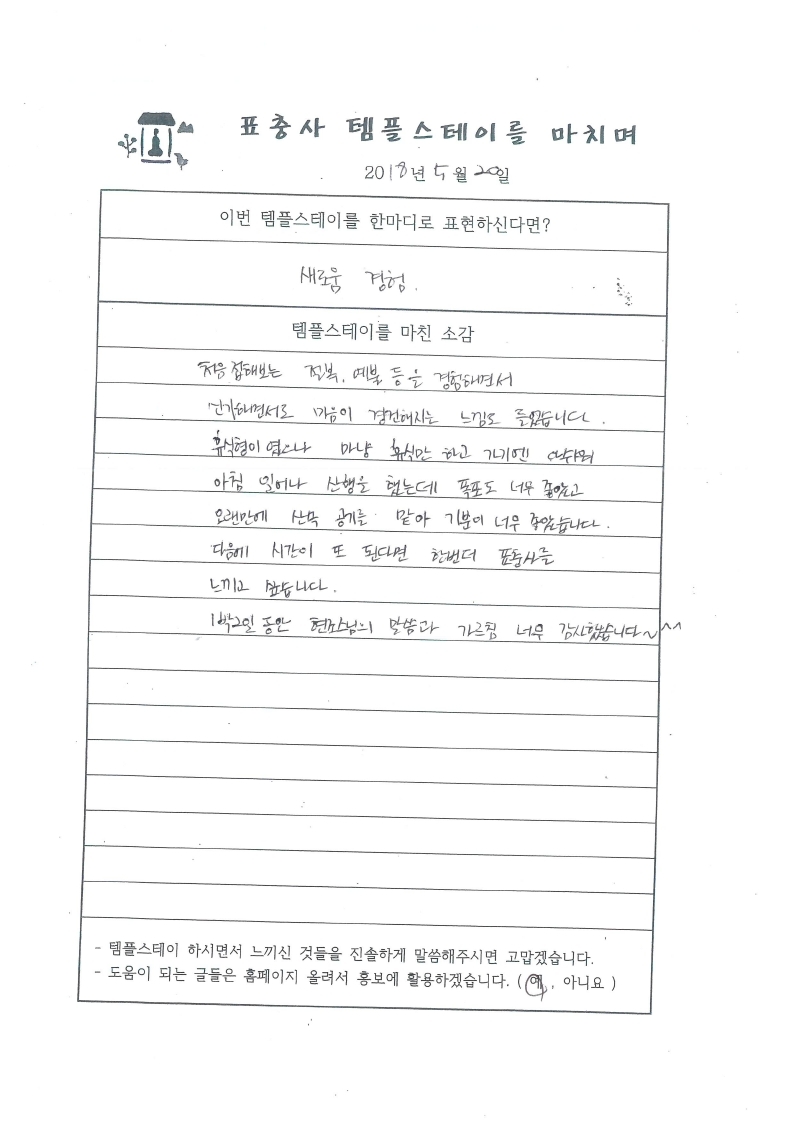 표충사 템플스테이를 마치며
2018년 5월 20일
이번 템플스테이를 한마디로 표현하신다면?
새로움 경험.
템플스테이를 마친 소감
처음 접해보는 절복, 예불 등을 경험하면서
신기하면서도 마음이 경건해지는 느낌도 들었습니다.
휴식형이었으나 마냥 휴식만 하고 가기엔 아쉬워
아침 일어나 산행을 했는데 폭포도 너무 좋았고
오랜만에 산속 공기를 맡아 기분이 너무 좋았습니다.
다음에 시간이 또 된다면 한번더 표충사를
느끼고 싶습니다.
1박2일 동안 스님의 말씀과 가르침 너무 감사했습니다~^^
- 템플스테이 하시면서 느끼신 것들을 진솔하게 말씀해주시면 고맙겠습니다.
- 도움이 되는 글들은 홈페이지 올려서 홍보에 활용하겠습니다. ( 예 , 아니요 )